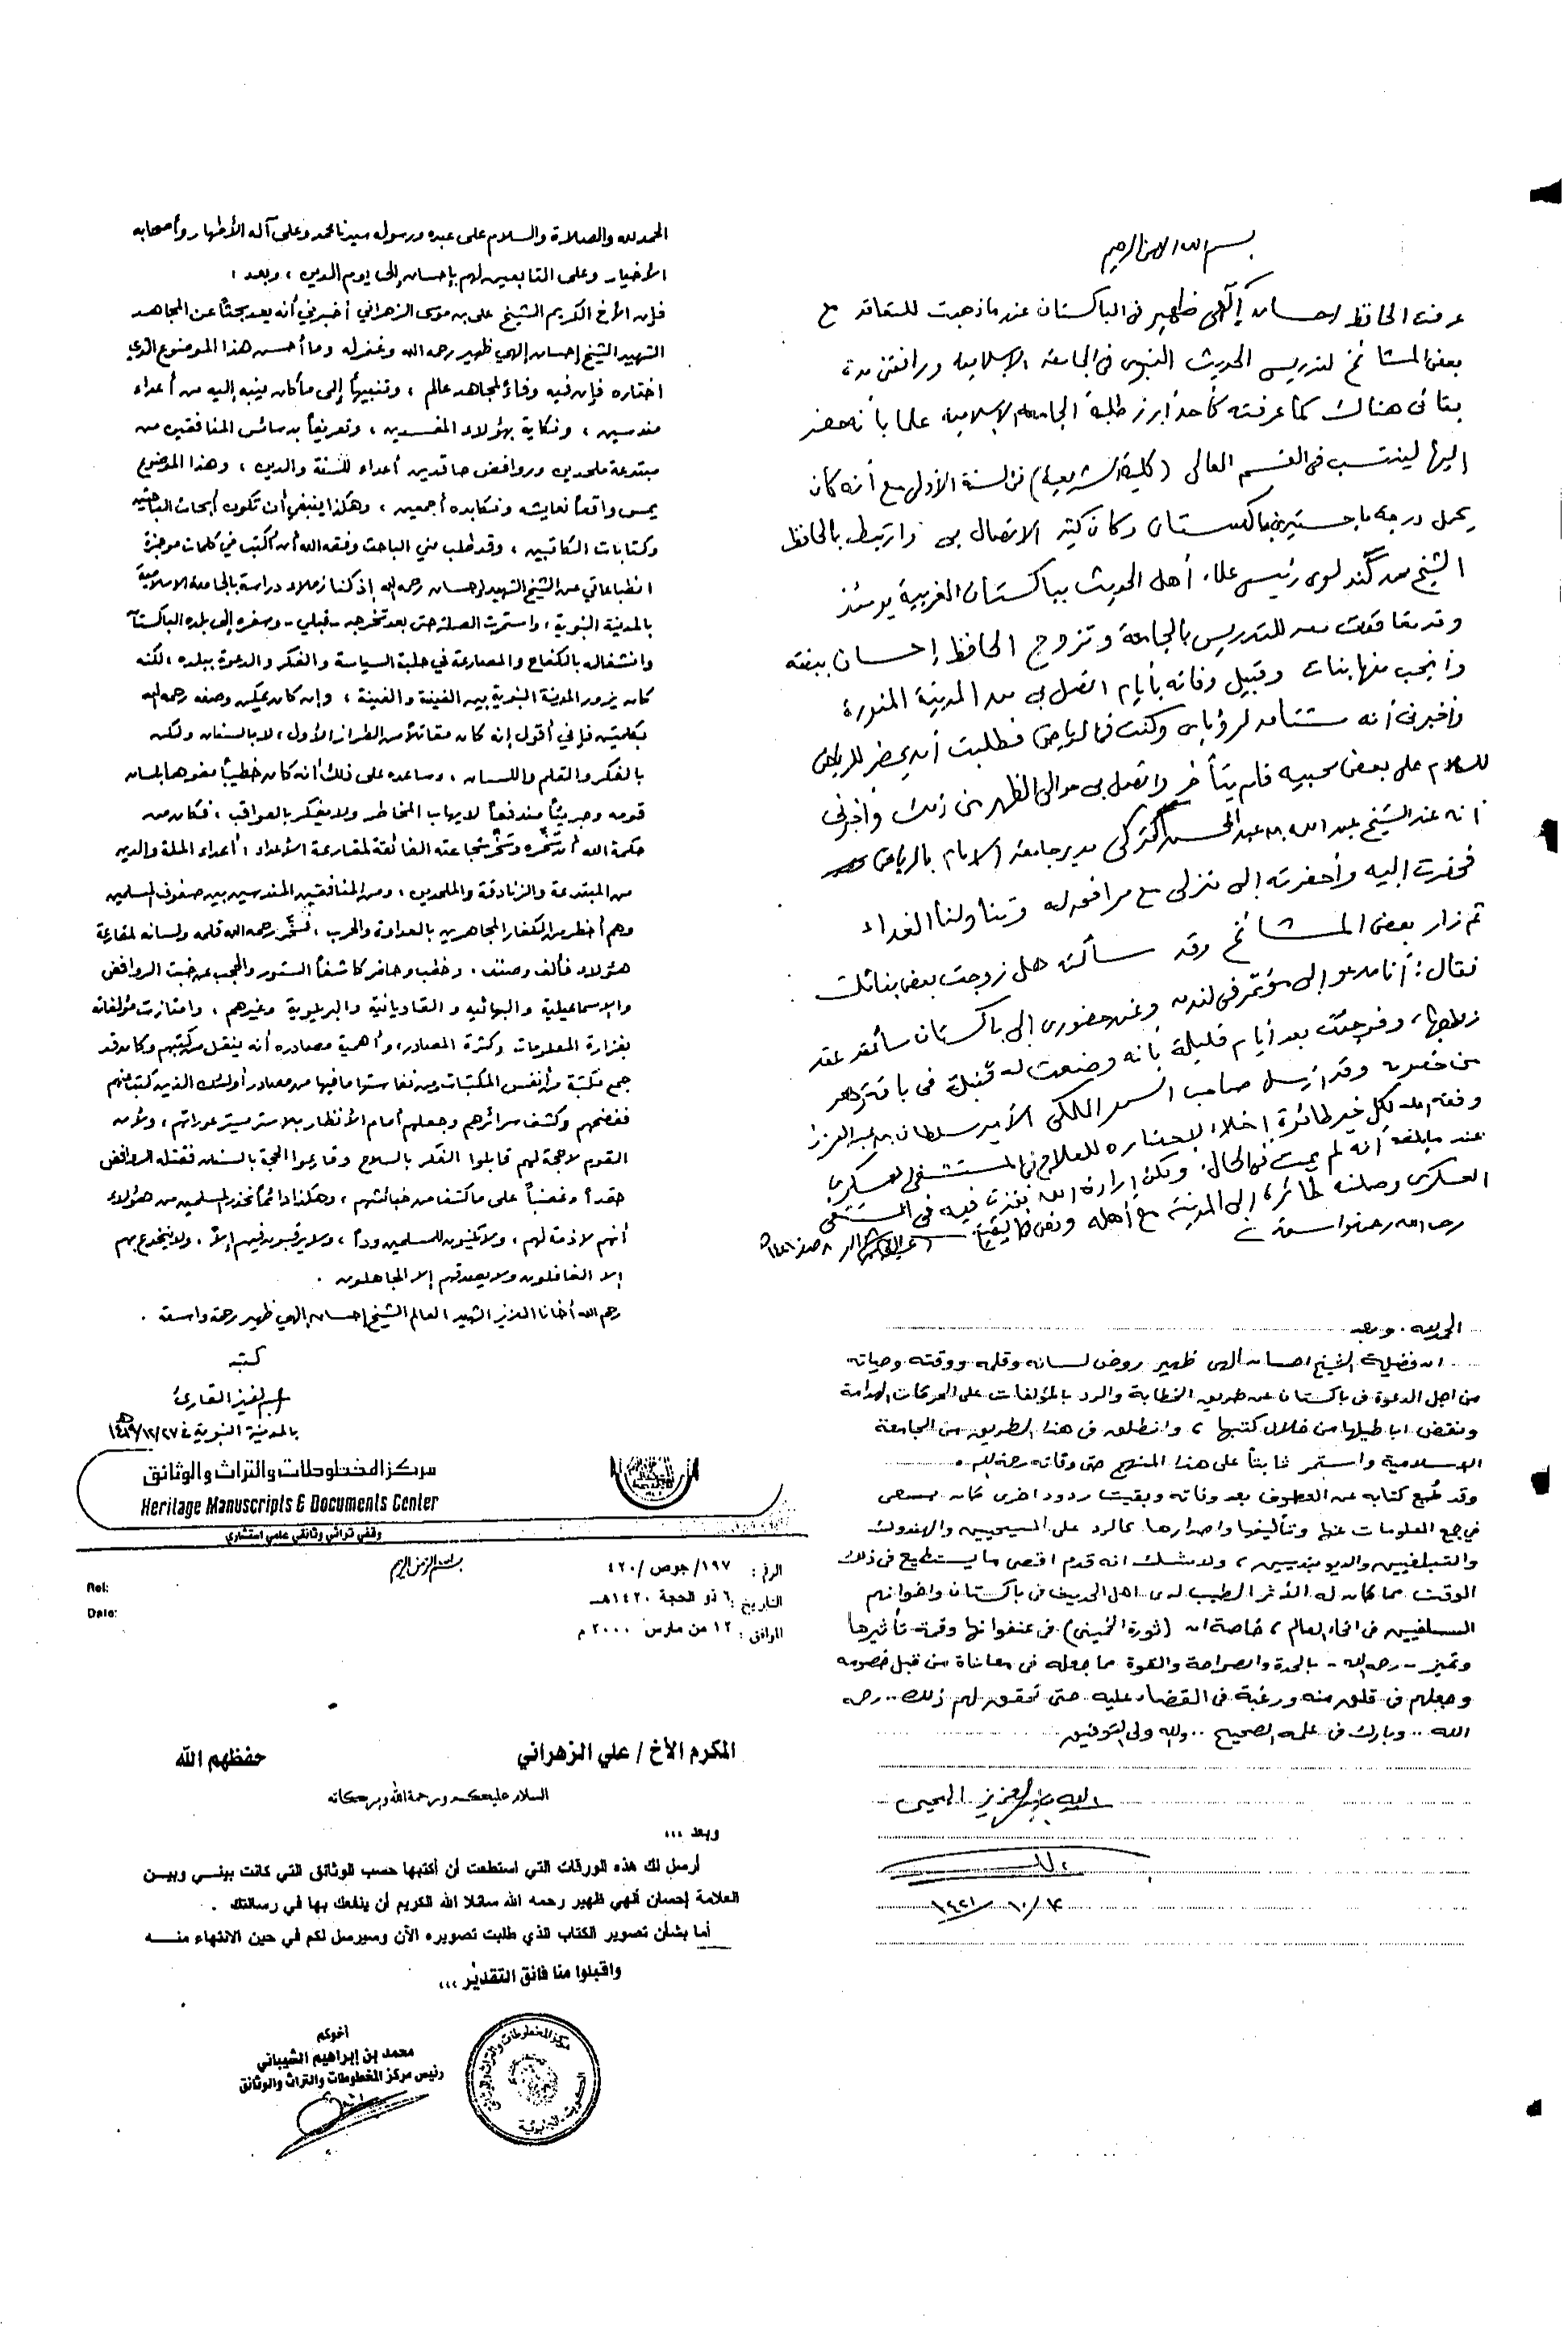 بسم الله الرحمن الرحيم
عرفت الحافظ إحسان إلهي ظهير في الباكستان عندما ذهبت للتعاقد مع
بعض المشائخ لتدريس الحديث النبوي في الجامعة الإسلامية ورافقني مدة
بقائي هناك كما عرفته كأحد أبرز طلبة الجامعة الإسلامية علما بأنه حضر
إليها لينتسب في القسم العالي (كلية الشريعة) في السنة الأولى مع أنه كان
يحمل درجة ماجستير في باكستان وكان كثير الاتصال بي وارتبط بالحافظ
الشيخ محمد گندلوي رئيس علماء أهل الحديث بباكستان الغربية يومئذ
وقد تعاقدت معه للتدريس بالجامعة وتزوج الحافظ إحسان ببنته
وأنجب منها بنات وقبيل وفاته بأيام اتصل بي من المدينة المنورة
وأخبرني أنه مشتاق لرؤياي وكنت في الرياض فطلبت أن يحضر للرياض
للسلام على بعض محبيه فلم يتأخر واتصل بي حوالي الظهر من ذلك وأخبرني
أنه عند الشيخ عبد الله بن عبد المحسن التركي مدير جامعة الإمام بالرياض
فحضرت إليه وأحضرته إلى منزلي مع مرافق له وتناولنا الغداء
ثم زار بعض المشائخ وقد سألته هل زوجت بعض بناتك
فقال: أنا مدعو إلى مؤتمر في لندن وعند حضوري إلى باكستان سأعقد عقد
زواجها، وفوجئت بعد أيام قليلة بأنه وضعت له قنبلة في باقة زهر
من خصومه وقد أرسل صاحب السمو الملكي الأمير سلطان بن عبد العزيز
وفقه الله لكل خير طائرة إخلاء لإحضاره للعلاج في المستشفى العسكري
عند ما بلغه أنه لم يمت في الحال. ولكن إرادة الله نفذت فيه في المستشفى
العسكري وحملته طائرة إلى المدينة مع أهله ودفن في البقيع
رحمه الله رحمة واسعة
الحمد لله. وبعد
إن فضيلة الشيخ احسان الهي ظهير روض لسانه وقلمه ووقته وحياته
من اجل الدعوة في باكستان عن طريق الخطابة والرد بالمؤلفات على الحركات الهدامة
ونقض اباطيلها من خلال كتبها، وانطلق في هذا الطريق من الجامعة
الإسلامية واستمر ثابتاً على هذا المنهج حتى وفاته رحمه الله.
وقد طبع كتابه عن التصوف بعد وفاته وبقيت ردود اخرى كان يسعى
في جمع المعلومات عنها وتأليفها واصدارها كالرد على المسيحيين والهندوك
والتبليغيين والديوبنديين، ولا شك انه قدم اقصى ما يستطيع في ذلك
الوقت مما كان له الأثر الطيب لدى اهل الحديث في باكستان واخوانهم
السلفيين في انحاء العالم، خاصة ان (ثورة الخميني) في عنفوانها وقمة تأثيرها
وتميز - رحمه الله - بالحدة والصراحة والقوة مما جعله في معاناة من قبل خصومه
وجعلهم في قلق منه ورغبة في القضاء عليه حتى تحقق لهم ذلك.. رحمه
الله.. وبارك في علمه الصحيح.. والله ولي التوفيق
الحمد لله والصلاة والسلام على عبده ورسوله سيدنا محمد وعلى آله الأطهار وأصحابه
الأخيار وعلى التابعين لهم بإحسان إلى يوم الدين، وبعد:
فإن الأخ الكريم الشيخ علي بن موسى الزهراني أخبرني أنه يعد بحثاً عن المجاهد
الشهيد الشيخ إحسان إلهي ظهير رحمه الله وغفر له وما أحسن هذا الموضوع الذي
اختاره فإن فيه وفاءً لمجاهد عالم، وتنبيهاً إلى ما كان ينبه إليه من أعداء
مندسين، ونكاية بهؤلاء المفسدين، وتعريفاً بدسائس المنافقين من
مبتدعة ملحدين وروافض حاقدين أعداء للسنة والدين، وهذا الموضوع
يمس واقعاً نعايشه ونكابده أجمعين، وهكذا ينبغي أن تكون أبحاث الباحثين
وكتابات الكاتبين، وقد طلب مني الباحث وفقه الله أن أكتب في كلمات موجزة
انطباعاتي عن الشيخ الشهيد إحسان رحمه الله إذ كنا زملاء دراسة بالجامعة الإسلامية
بالمدينة النبوية، واستمرت الصلة حتى بعد تخرجه - قبلي - وسفره إلى بلده الباكستان
وانشغاله بالكفاح والمصارعة في حلبة السياسة والفكر والدعوة ببلده، لكنه
كان يزور المدينة النبوية بين الفينة والفينة، وإن كان يمكن وصفه رحمه الله
بكلمتين فإني أقول إنه كان مقاتلاً من الطراز الأول، لا بالسنان ولكن
بالفكر والقلم واللسان، وساعده على ذلك أنه كان خطيباً مفوهاً بلسان
قومه وجريئاً مندفعاً لا يهاب المخاطر ولا يفكر بالعواقب، فكان من
حكمة الله أن سخّره وسخّر شجاعته الفائقة لمقارعة الأعداء، أعداء الملة والدين
من المبتدعة والزنادقة والملحدين، ومن المنافقين المندسين بين صفوف المسلمين
وهم أخطر من الكفار المجاهرين بالعداوة والحرب، فسخّر رحمه الله قلمه ولسانه لمقارعة
هؤلاء فألف وصنف، وخطب وحاضر كاشفاً الستور والحجب عن خبث الروافض
والإسماعيلية والبهائية والقاديانية والبريلوية وغيرهم، وامتازت مؤلفاته
بغزارة المعلومات وكثرة المصادر، وأهمية مصادره أنه ينقل من كتبهم وكان قد
جمع مكتبة من أنفس المكتبات ومن نفاستها ما فيها من مصادر أولئك الذين كتب عنهم
ففضحهم وكشف سرائرهم وجعلهم أمام الأنظار بلا ستر يستر عوراتهم، ولأن
القوم لا حجة لهم قابلوا الفكر بالسلاح وقارعوا الحجة بالسنان فقتله الروافض
حقداً وغضباً على ما كشف من خبائثهم، وهكذا دائماً نحذر المسلمين من هؤلاء
أنهم لا ذمة لهم، ولا يكنون للمسلمين وداً، ولا يرقبون فيهم إلاً، ولا ينخدع بهم
إلا الغافلون ولا يصدقهم إلا الجاهلون.
رحم الله أخانا العزيز الشهيد العالم الشيخ إحسان إلهي ظهير رحمة واسعة.
كتبه
عبد العزيز القارئ
بالمدينة النبوية في ١٤١٩/١٢/٢٧هـ
مركز المخطوطات والتراث والوثائق
Heritage Manuscripts & Documents Center
وقفي تراثي وثائقي علمي استشاري
بسم الله الرحمن الرحيم
الرقم: ١٩٧/جوص/٤٢٠
Ref:
التاريخ: ٦ ذو الحجة ١٤٢٠هـ
Date:
الموافق: ١٢ من مارس ٢٠٠٠ م
المكرم الأخ / علي الزهراني حفظهم الله
السلام عليكم ورحمة الله وبركاته
وبعد ...
أرسل لك هذه الورقات التي استطعت أن أكتبها حسب الوثائق التي كانت بيني وبين
العلامة إحسان إلهي ظهير رحمه الله سائلا الله الكريم أن ينفعك بها في رسالتك .
أما بشأن تصوير الكتاب الذي طلبت تصويره الآن وسيرسل لكم في حين الانتهاء منه
واقبلوا منا فائق التقدير ،،،
أخوكم
محمد بن إبراهيم الشيباني
رئيس مركز المخطوطات والتراث والوثائق